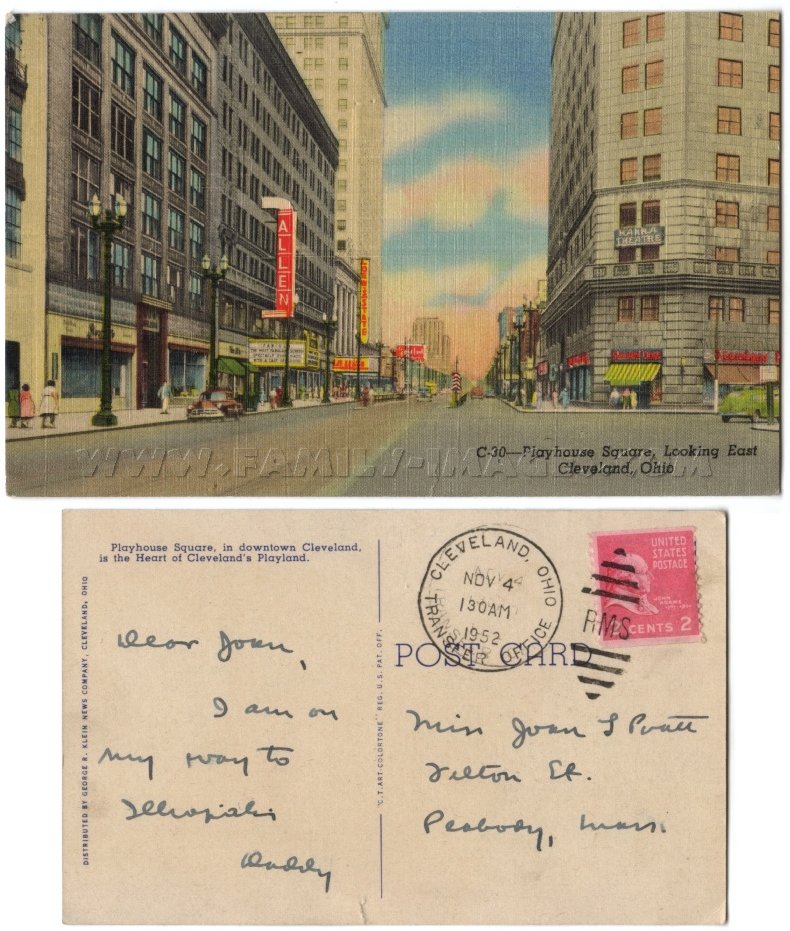 ALLEN
LOEW'S STATE
HANNA
THEATRE
WWW.FAMILY-IMAGES.COM
C-30—Playhouse Square, Looking East
Cleveland, Ohio
Playhouse Square, in downtown Cleveland,
is the Heart of Cleveland's Playland.
DISTRIBUTED BY GEORGE R. KLEIN NEWS COMPANY, CLEVELAND, OHIO
Dear Joan,
I am on
my way to
Daddy
"C.T. ART-COLORTONE" REG. U.S. PAT. OFF.
POST CARD
CLEVELAND, OHIO
NOV 4
130AM
1952
TRANSFER OFFICE
RMS
UNITED
STATES
POSTAGE
JOHN
ADAMS
2 CENTS 2
Miss Joan L Pratt
Felton St.
Peabody, Mass